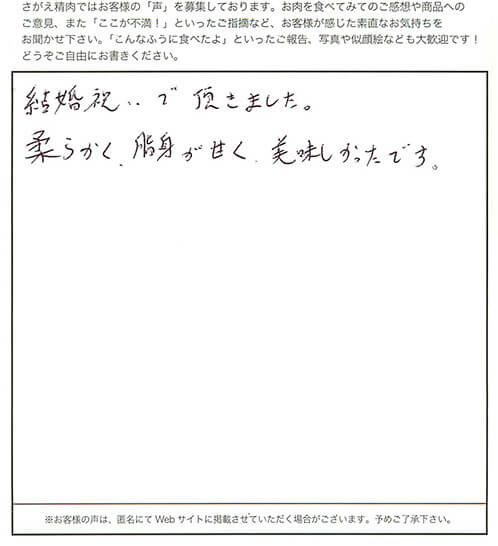 さがえ精肉ではお客様の「声」を募集しております。お肉を食べてみてのご感想や商品への
ご意見、また「ここが不満！」といったご指摘など、お客様が感じた素直なお気持ちを
お聞かせ下さい。「こんなふうに食べたよ」といったご報告、写真や似顔絵なども大歓迎です！
どうぞご自由にお書きください。
結婚祝いで頂きました。
柔らかく、脂身が甘く、美味しかったです。
※お客様の声は、匿名にてWebサイトに掲載させていただく場合がございます。予めご了承下さい。